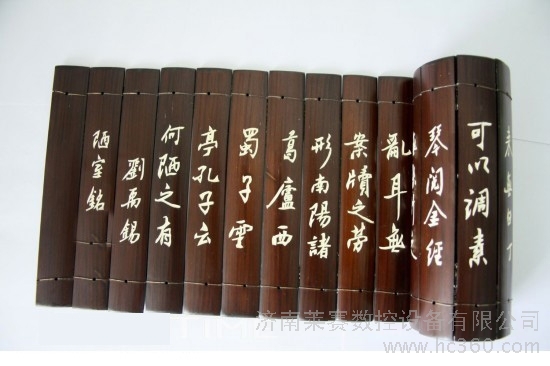 可以调素
琴阅金经
亂耳無
案牘之劳
形南陽諸
葛廬西
蜀子雲
亭孔子云
何陋之有
劉禹錫
陋室銘
济南莱赛数控设备有限公司
www.hc360.com